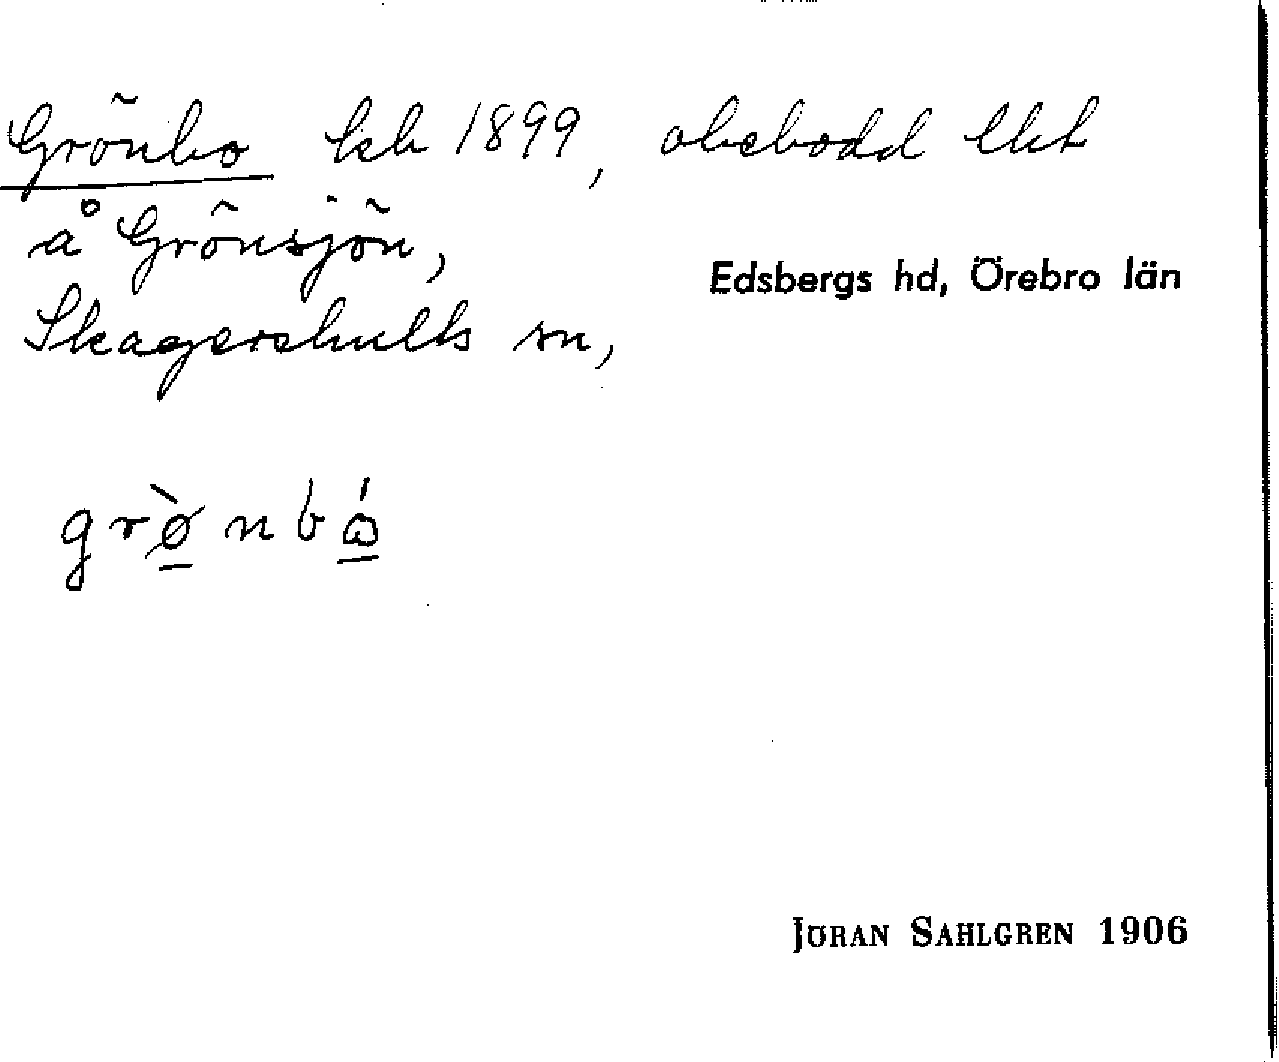 Grönbo kb 1899, obebodd lht
å Grönsjön,
Edsbergs hd, Örebro län
Skagershults sn,
grø̀nbá
JÖRAN SAHLGREN 1906